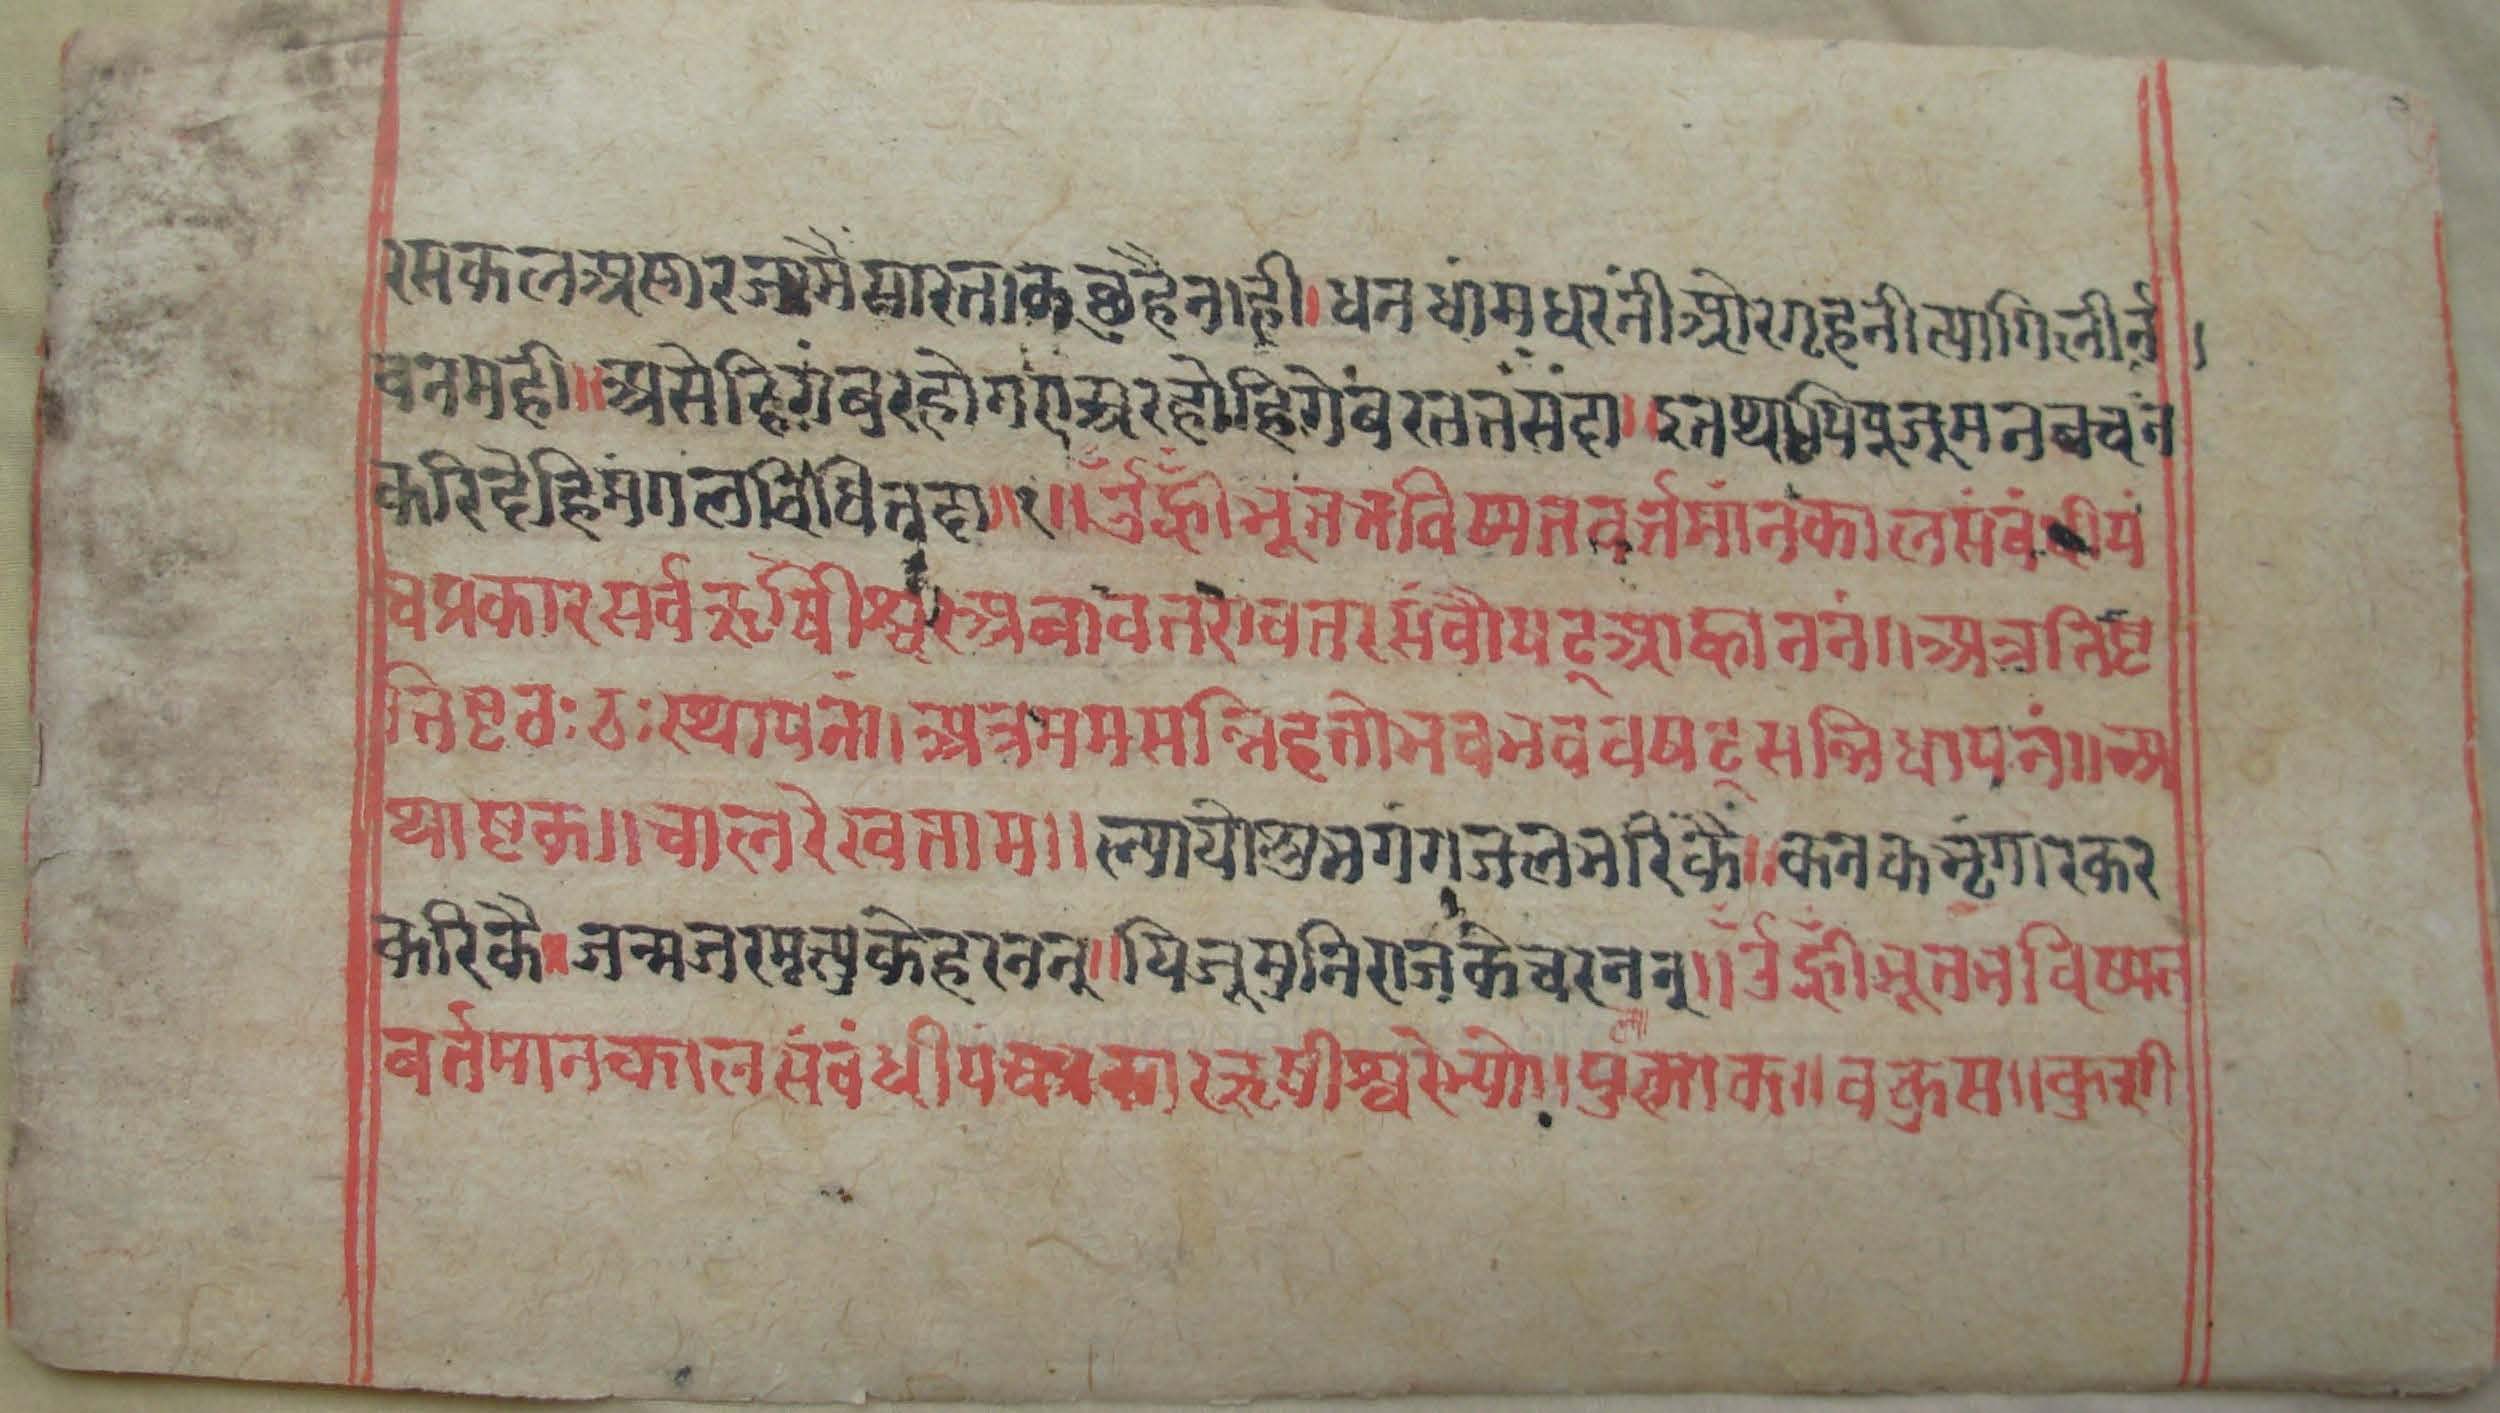 रसकलअसारजामैसारताकछुहैनाही।धनधांमधरंनीओरगृहनीत्यागिलीनं
वनमही॥असेदिगंबरहोगएअरहोहिगेंबरततंसंदा॥इनथापिपूजूमनबचन
करिदेहिमंगलविधितदा॥१॥ॐह्रीँभूतभविष्यतवर्तमांनकालसंबंधीपं
चप्रकारसर्वऋषीश्वरअत्रावतरावतरसंवौषट्आह्वाननं॥अत्रतिष्ट
तिष्टठःठःस्थापनं॥अत्रममसन्निहतोभवभववषट्सन्निधापनं॥अ
थाष्टक॥चालरेखताम॥ल्यायोशुभगंगजलभरिकैं॥कनकभृंगारकर
करिकै॥जन्मजरमृत्युकेहरननू॥यिजूमुनिराजकेचरननू॥ॐह्रीँभूतभविष्यत
बर्तमानकालसंबंधीपंचप्रकारऋषीश्वरेभ्यो॥